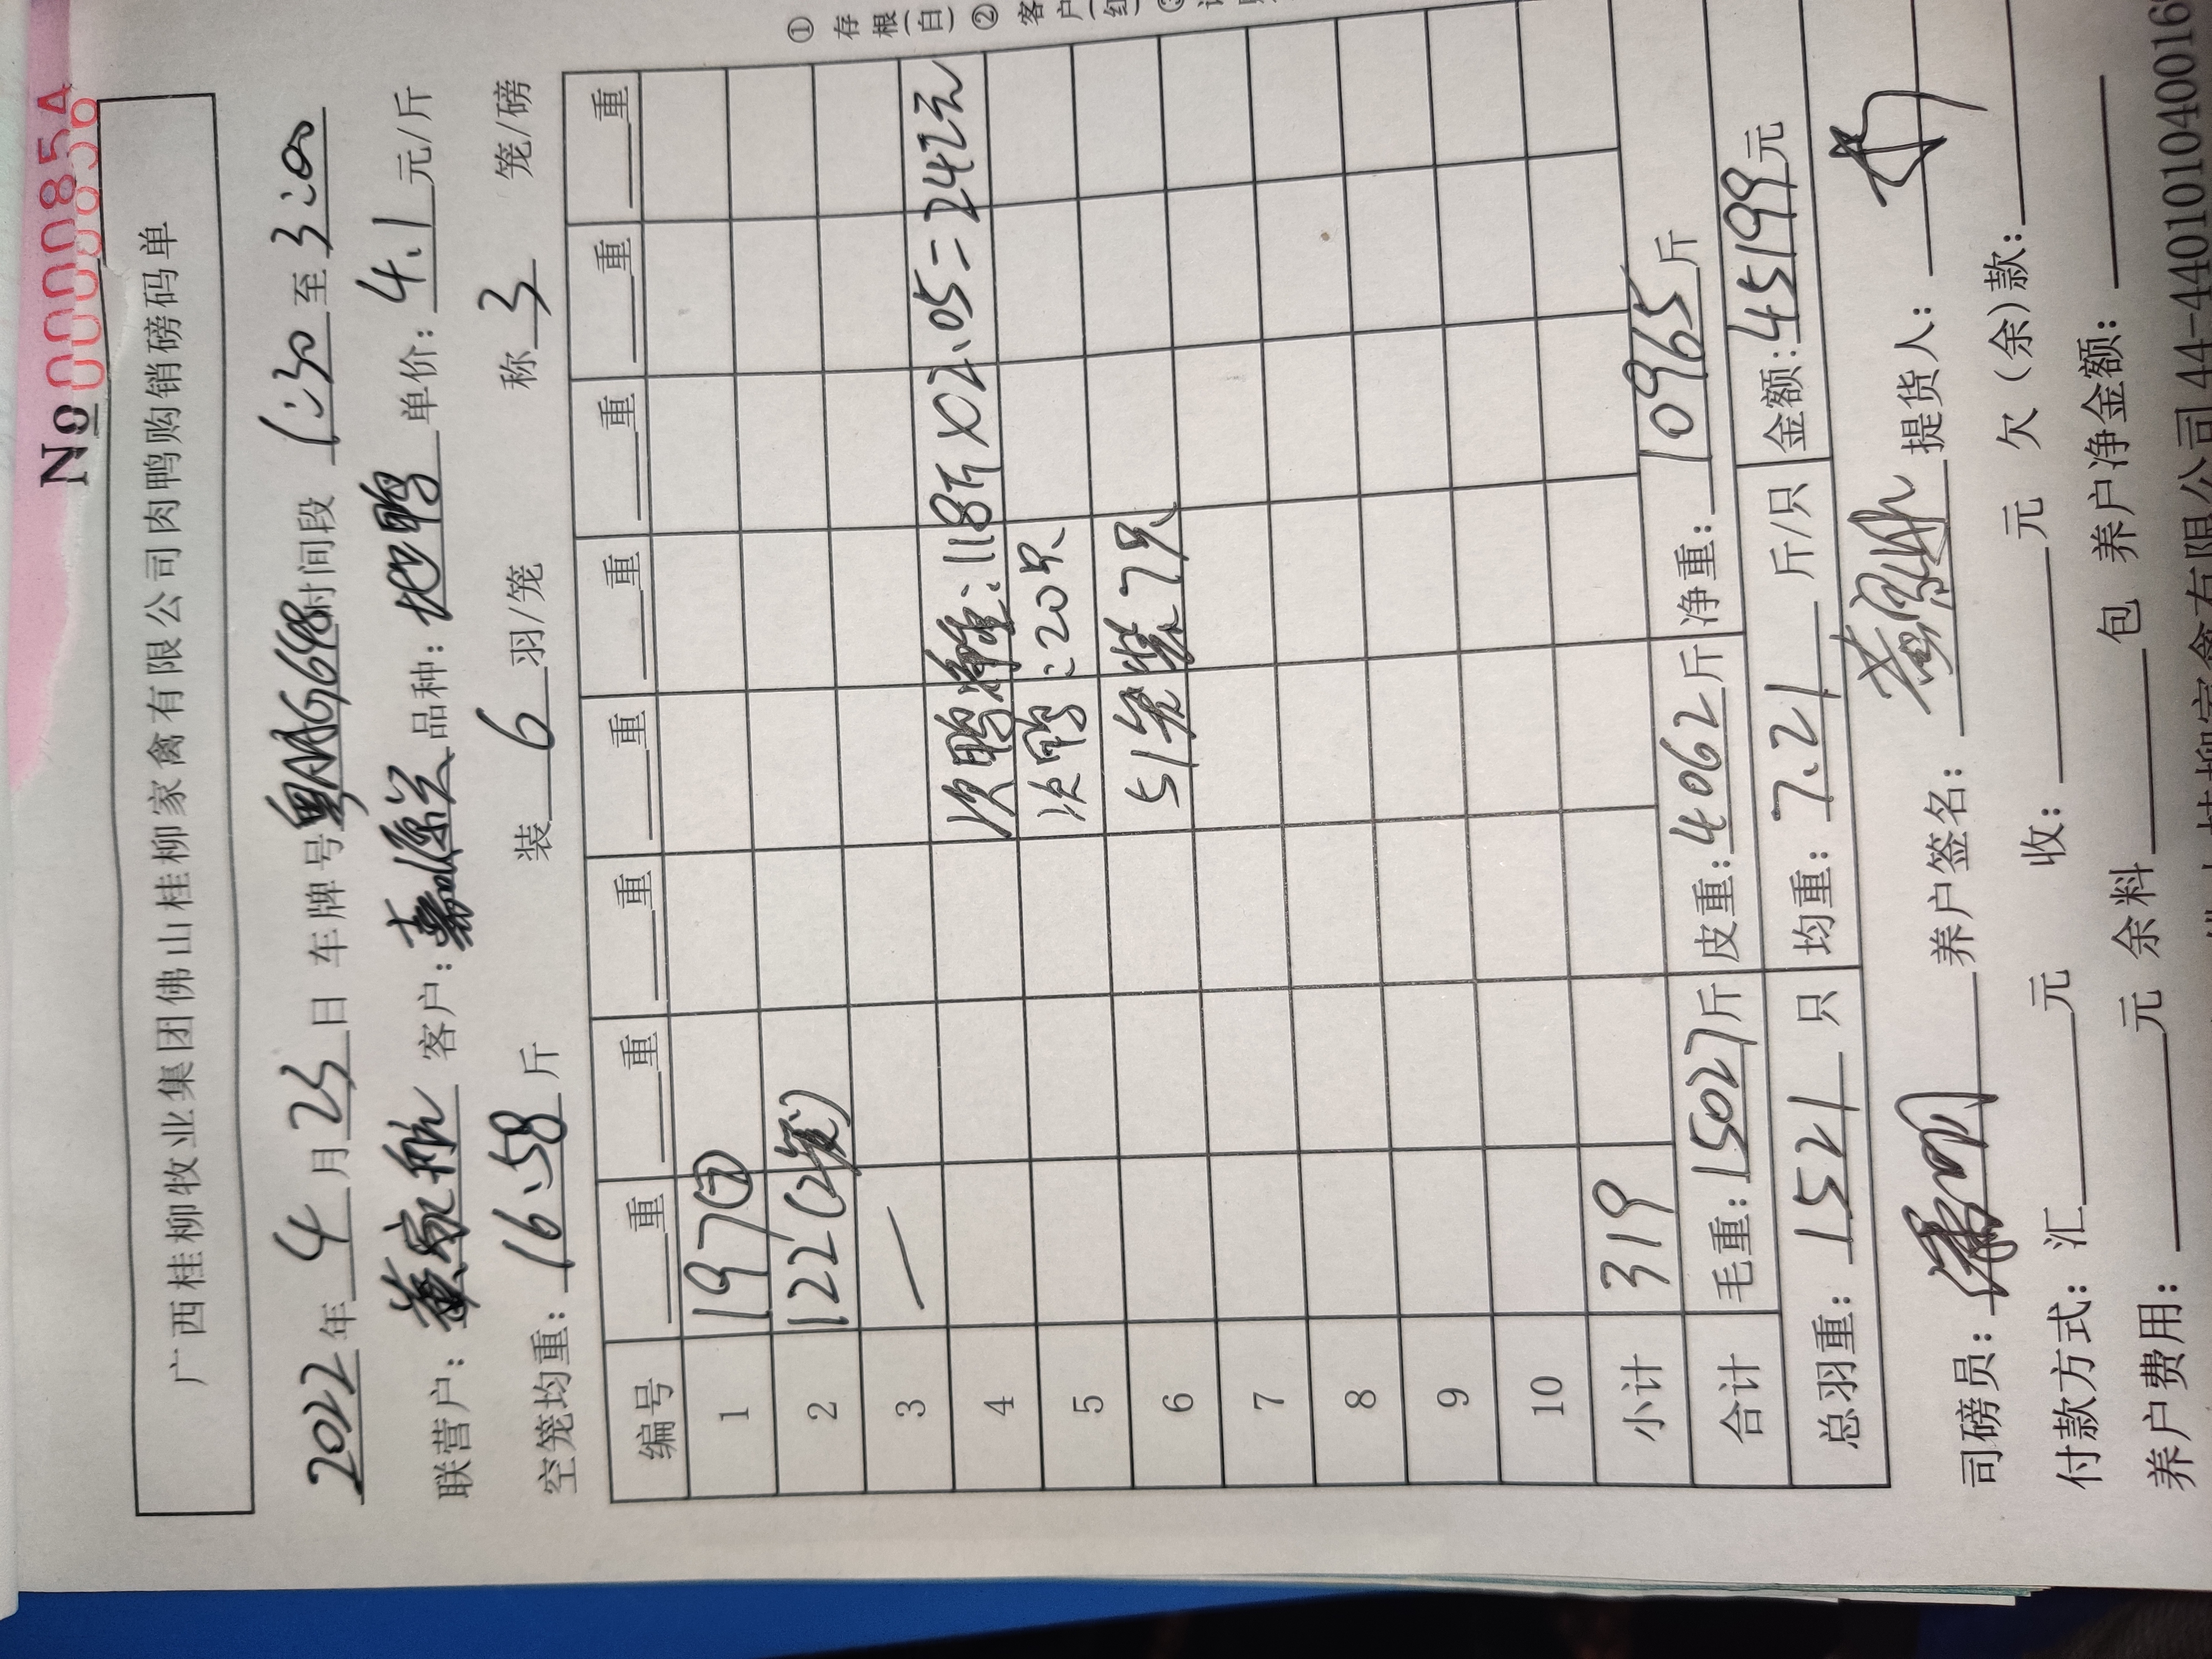 No 0000854
广西桂柳牧业集团佛山桂柳家禽有限公司肉鸭购销磅码单
2022年4月23日 车牌号粤AAG698时间段 1:30至3:00
联营户: 黄家彬 客户: 嘉源兰 品种: 地鸭 单价: 4.1元/斤
空笼均重: 16.58斤 装6羽/笼 称3笼/磅
编号 重 重 重 重 重 重 重 重
1 197⑦
2 122(2笼)
3 —
4 次鸭种重:118斤×02.05=242元
5 次鸭:20只
6 51笼装7只
7
8
9
10
小计 319
合计 毛重:15027斤 皮重:4062斤 净重:10965斤
总羽重:1521只 均重:7.21斤/只 金额:45199元
司磅员: 养户签名: 提货人:
付款方式: 汇 元 收: 元 欠(余)款:
养户费用: 元 余料 包 养户净金额:
① 存根(白) ② 客户(红) ③
公司44-4401010400016